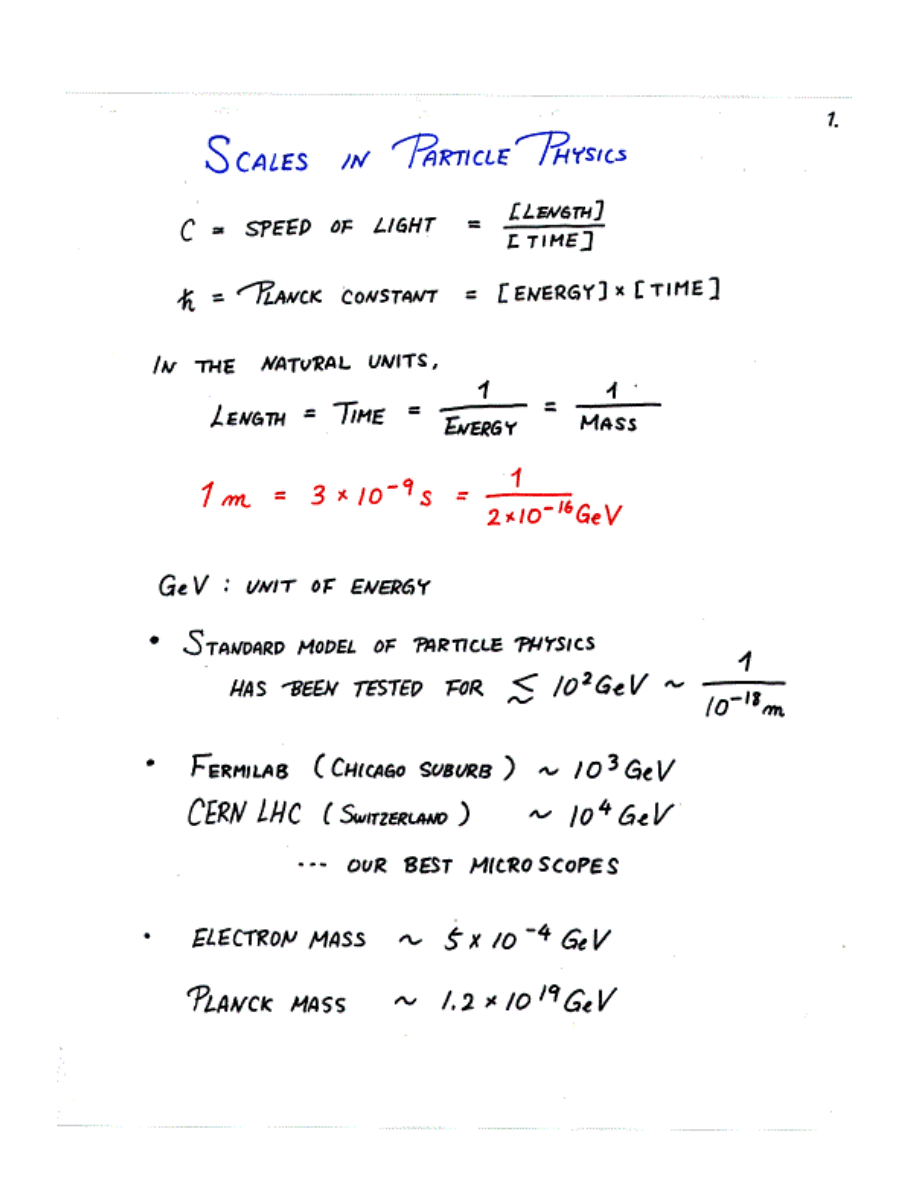 1.
SCALES IN PARTICLE PHYSICS
C = SPEED OF LIGHT = [LENGTH] / [TIME]
ℏ = PLANCK CONSTANT = [ENERGY] × [TIME]
IN THE NATURAL UNITS,
LENGTH = TIME = 1 / ENERGY = 1 / MASS
1 m = 3 × 10⁻⁹ s = 1 / 2×10⁻¹⁶ GeV
GeV : UNIT OF ENERGY
• STANDARD MODEL OF PARTICLE PHYSICS
HAS BEEN TESTED FOR ≲ 10² GeV ~ 1 / 10⁻¹⁸ m
• FERMILAB (CHICAGO SUBURB) ~ 10³ GeV
CERN LHC (SWITZERLAND) ~ 10⁴ GeV
--- OUR BEST MICROSCOPES
• ELECTRON MASS ~ 5 × 10⁻⁴ GeV
PLANCK MASS ~ 1.2 × 10¹⁹ GeV